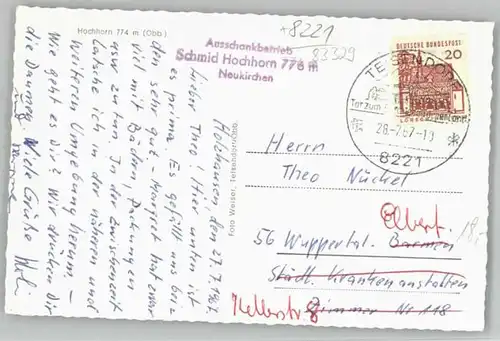 Hochhorn 774 m (Obb.)
+8221
83329
Ausschankbetrieb
Schmid Hochhorn 776 m
Neukirchen
Holzhausen, den 27.7.1967.
Lieber Theo! Hier unten ist
es prima. Es gefällt uns beiden
sehr gut. Margret hat zwar
viel mit Bädern, Packungen
usw. zu tun. In der Zwischenzeit
latsche ich in der näheren und
weiteren Umgebung herum. –
Wie geht es Dir? Wir drücken Dir
die Daumen. Viele Grüße
Foto Weiser, Teisendorf/Obb.
DEUTSCHE BUNDESPOST
20
TEISENDORF
Tor zum
28.-7.67-10
8221
Herrn
Theo Nückel
Elberf.
18,-
56 Wuppertal-Barmen
Städt. Krankenanstalten
Zimmer Nr 118
Kellerstr 8